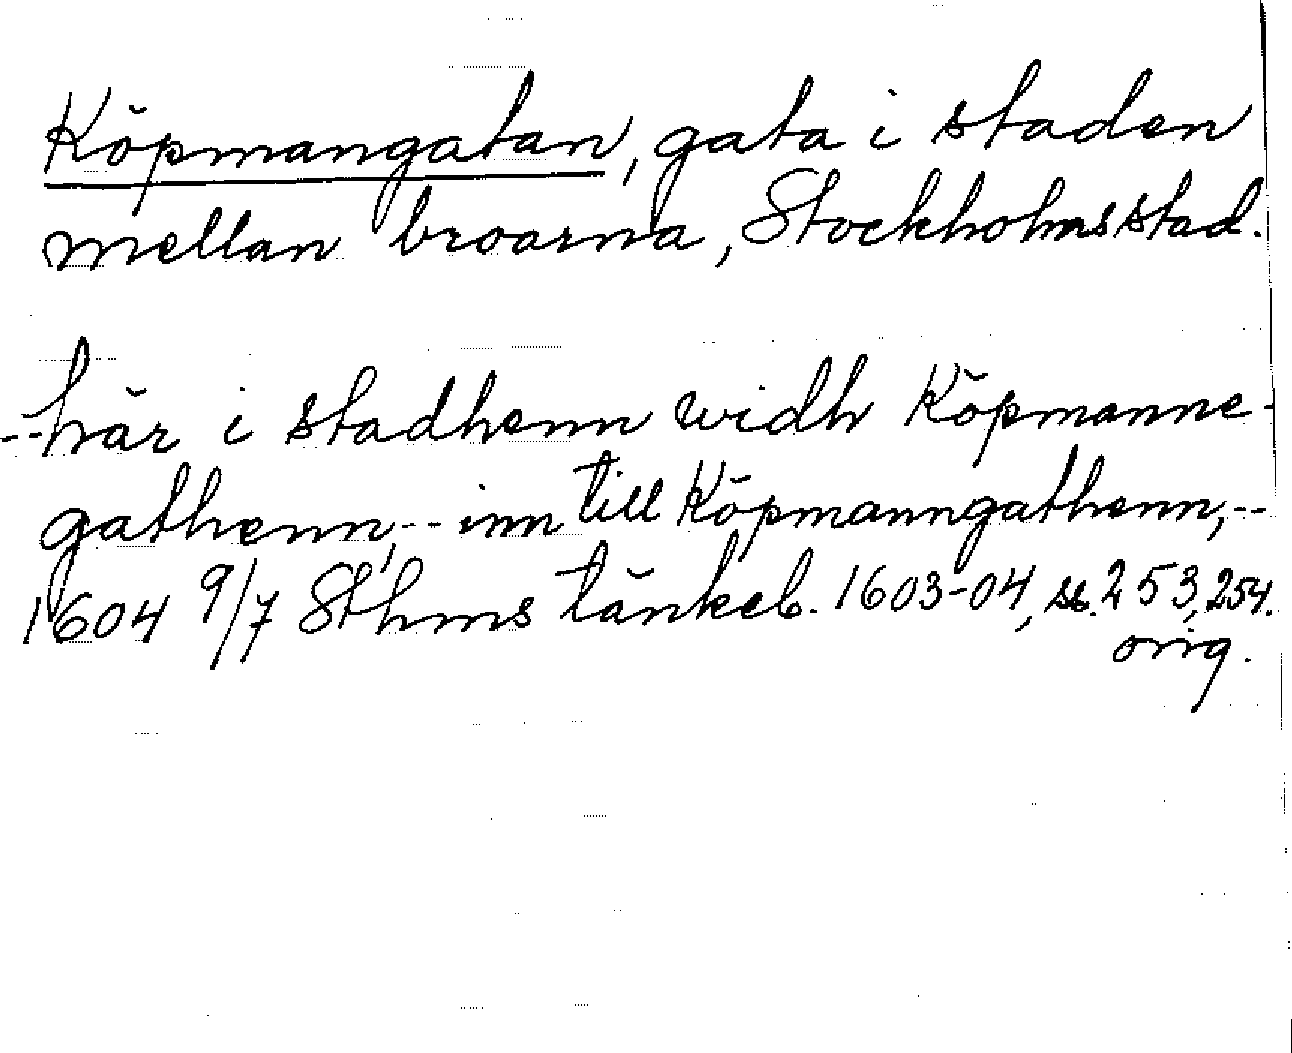 Köpmangatan, gata i staden
mellan broarna, Stockholms stad.
--här i stadhenn widh Köpmanne-
gathenn,-- inn till Köpmanngathenn,--
1604 9/7 Sthms tänkeb. 1603-04, ss. 253, 254.
orig.